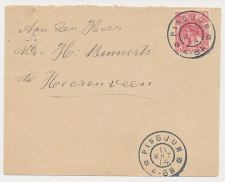 Aan den Heer
Mr. H. Binnerts
te Heerenveen
PINGJUM
PINGJUM
11
MRT
14
4-8N